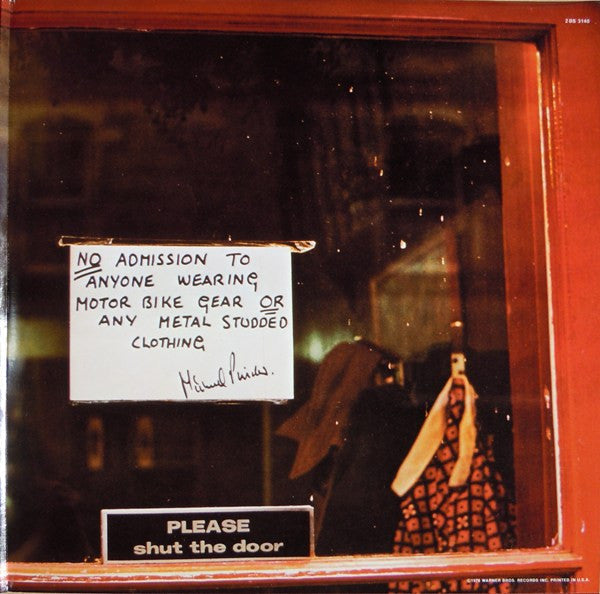 ZBS 3140
NO ADMISSION TO
ANYONE WEARING
MOTOR BIKE GEAR OR
ANY METAL STUDDED
CLOTHING
PLEASE
shut the door
©1978 WARNER BROS. RECORDS INC. PRINTED IN U.S.A.